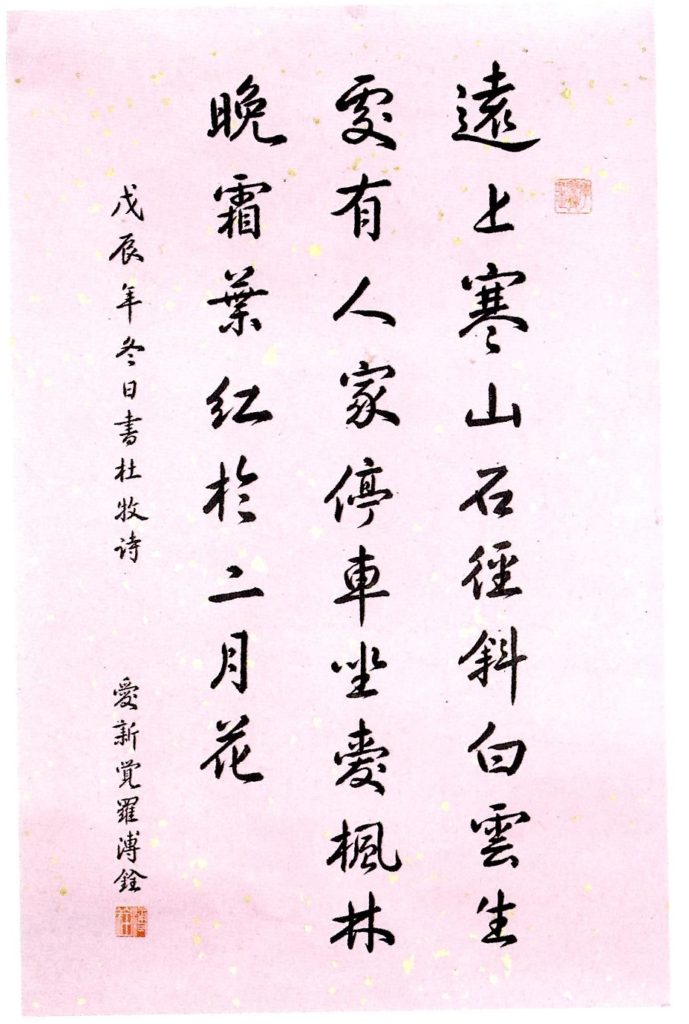 遠上寒山石徑斜白雲生
處有人家停車坐愛楓林
晚霜葉紅於二月花
戊辰年冬日書杜牧诗
愛新覚羅溥銓